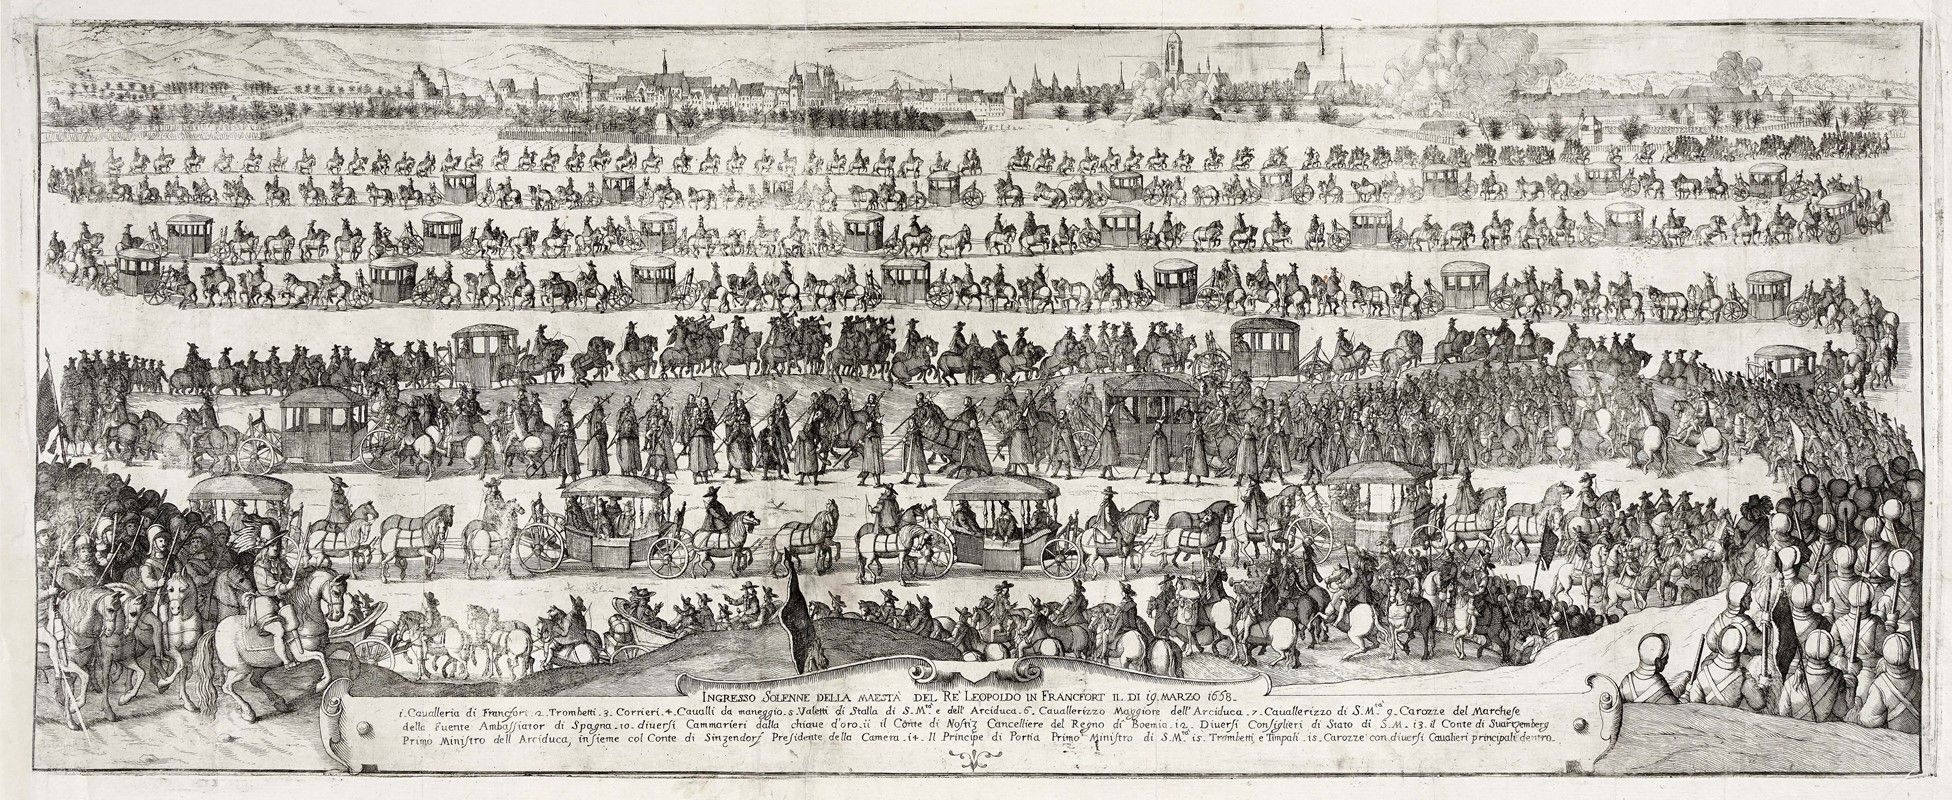 INGRESSO SOLENNE DELLA MAESTA' DEL RE' LEOPOLDO IN FRANCFORT IL DI 19. MARZO 1658.
1. Caualleria di Francfort. 2. Trombetti. 3. Corrieri. 4. Caualli da maneggio. 5. Valetti di Stalla di S.M.tà e dell' Arciduca. 6. Cauallerizzo Maggiore dell' Arciduca. 7. Cauallerizzo di S.M.tà 9. Carozze del Marchese
della Fuente Ambassiator di Spagna. 10. diuersi Cammarieri dalla chiaue d'oro. 11 il Conte di Nostiz Cancelliere del Regno di Boemia. 12. Diuersi Consiglieri di Stato di S.M. 13. il Conte di Suartzemberg
Primo Ministro dell Arciduca, insieme col Conte di Sinzendorf Presidente della Camera. 14. Il Principe di Portia Primo Ministro di S.M.tà 15. Trombetti e Timpali. 15. Carozze con diuersi Caualieri principali dentro.